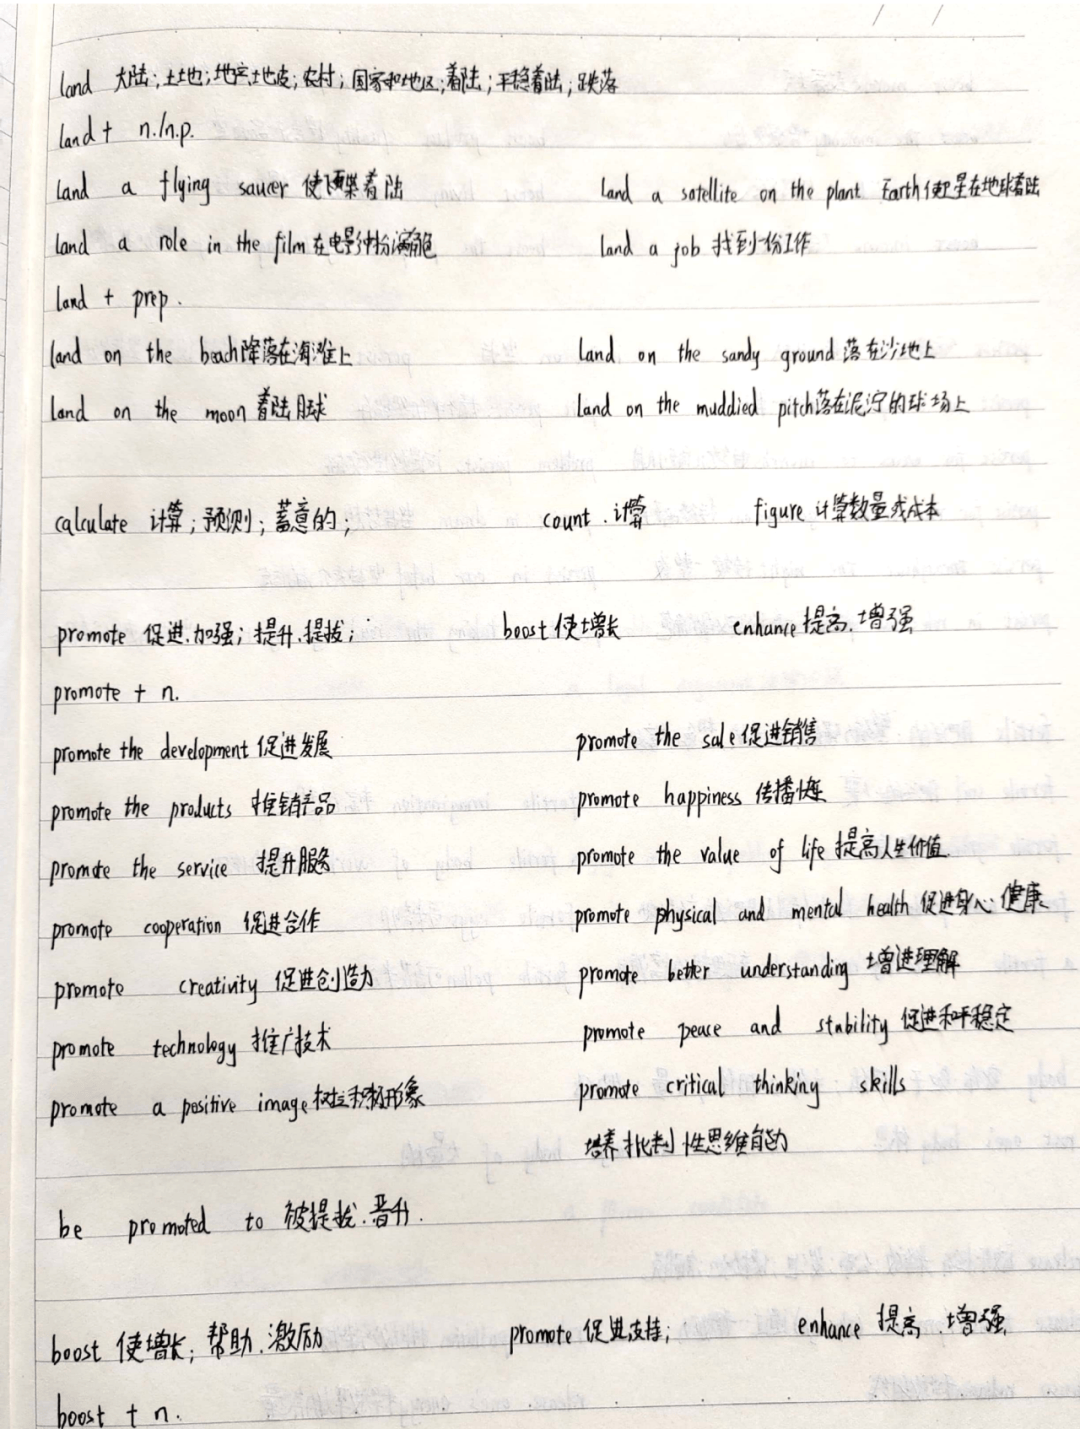 land 大陆;土地;地产,地皮;农村;国家和地区;着陆;平稳着陆;跌落
land + n./n.p.
land a flying saucer 使飞碟着陆 land a satellite on the plant Earth 使卫星在地球着陆
land a role in the film 在电影中扮演角色 land a job 找到一份工作
land + prep.
land on the beach 降落在海滩上 land on the sandy ground 落在沙地上
land on the moon 着陆月球 land on the muddied pitch 落在泥泞的球场上
calculate 计算;预测;蓄意的; count.计算 figure 计算数量或成本
promote 促进.加强;提升.提拔; boost 使增长 enhance 提高.增强
promote + n.
promote the development 促进发展 promote the sale 促进销售
promote the products 推销产品 promote happiness 传播快乐
promote the service 提升服务 promote the value of life 提高人生价值
promote cooperation 促进合作 promote physical and mental health 促进身心健康
promote creativity 促进创造力 promote better understanding 增进理解
promote technology 推广技术 promote peace and stability 促进和平稳定
promote a positive image 树立积极形象 promote critical thinking skills
培养批判性思维能力
be promoted to 被提拔.晋升.
boost 使增长;帮助.激励 promote 促进,支持; enhance 提高.增强
boost + n.